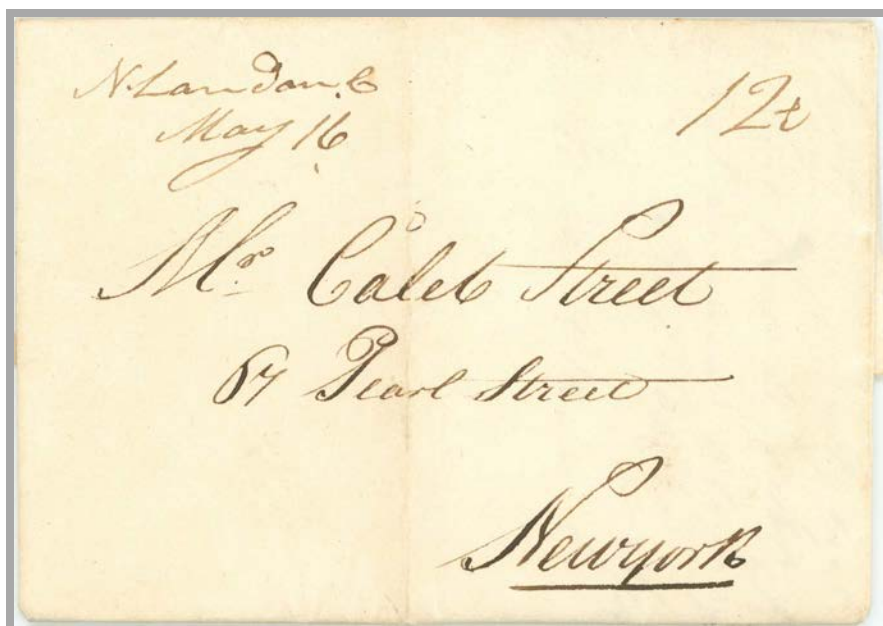 N.London.C
May 16
12½
Mr. Caleb Street
67 Pearl Street
Newyork